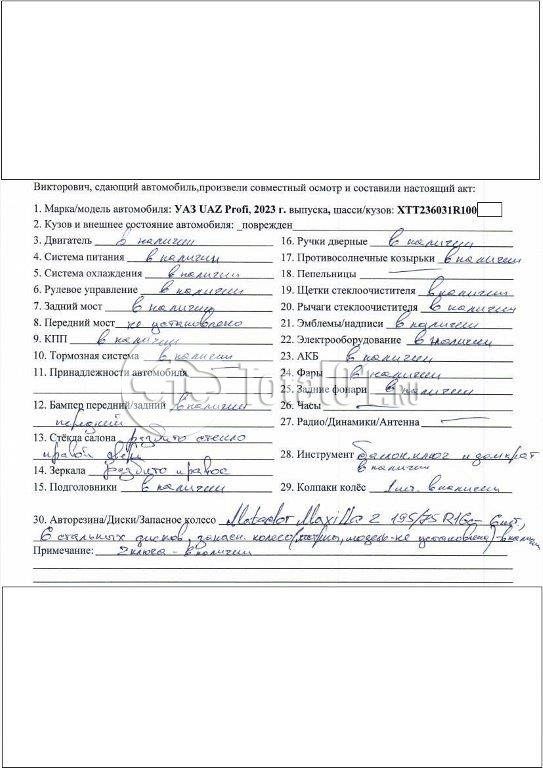 Викторович, сдающий автомобиль,произвели совместный осмотр и составили настоящий акт:
1. Марка/модель автомобиля: УАЗ UAZ Profi, 2023 г. выпуска, шасси/кузов: XTT236031R100
2. Кузов и внешнее состояние автомобиля: _поврежден
3. Двигатель в наличии
4. Система питания в наличии
5. Система охлаждения в наличии
6. Рулевое управление в наличии
7. Задний мост в наличии
8. Передний мост не установлено
9. КПП в наличии
10. Тормозная система в наличии
11. Принадлежности автомобиля
12. Бампер передний/задний в наличии
передний
13. Стёкла салона разбито стекло
правой двери
14. Зеркала разбито правое
15. Подголовники в наличии
16. Ручки дверные в наличии
17. Противосолнечные козырьки в наличии
18. Пепельницы —
19. Щетки стеклоочистителя в наличии
20. Рычаги стеклоочистителя в наличии
21. Эмблемы/надписи в наличии
22. Электрооборудование в наличии
23. АКБ в наличии
24. Фары в наличии
25. Задние фонари в наличии
26. Часы —
27. Радио/Динамики/Антенна —
28. Инструмент балон.ключ и домкрат
в наличии
29. Колпаки колёс 1 шт. в наличии
30. Авторезина/Диски/Запасное колесо Matador Maxilla 2 195/75 R16c- 6 шт,
6 стальных дисков, запасн. колесо (марка, модель-не установлена)-в налич
Примечание: 2 ключа - в наличии
Total01.ru